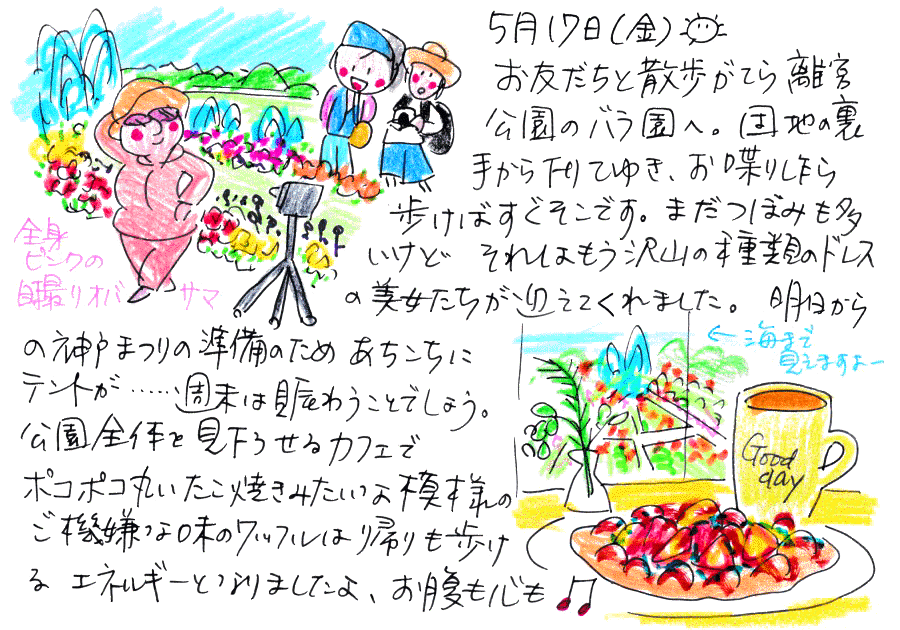 5月17日(金)
お友だちと散歩がてら離宮
公園のバラ園へ。団地の裏
手から下りてゆき、お喋りしたら
歩けばすぐそこです。まだつぼみも多
いけど それはもう沢山の種類のドレス
の美女たちが迎えてくれました。 明日から
の神戸まつりの準備のため あちこちに
テントが……週末は賑わうことでしょう。
公園全体を見下ろせるカフェで
ポコポコ丸いたこ焼きみたいな模様の
ご機嫌な味のワッフルは帰りも歩け
る エネルギーとなりましたよ、お腹も心も♫
全身
ピンクの
自撮りオバサマ
←海まで
見えますよー
Good
day